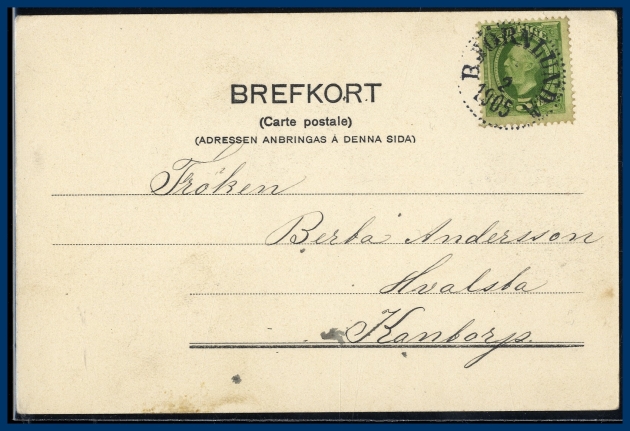 BJÖRNLUNDA
2
1905
BREFKORT
(Carte postale)
(ADRESSEN ANBRINGAS Å DENNA SIDA)
Fröken
Berba Andersson
Hvalsta
Kantorp.